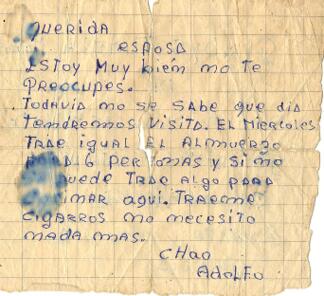 QUERIDA
ESPOSA
ESTOY MUY BIÉM MO TE
PREOCUPES.
TODAVIA MO SE SABE QUE DIA
TEMDREMOS VISITA. EL MIERCOLES
TRAE IGUAL EL ALMUERZO
6 PERSOMAS Y SI MO
PUEDE TRAE ALGO PARA
COCIMAR AQUI. TRAEME
CIGARROS MO MECESITO
MADA MAS.
CHAO
ADOLFO